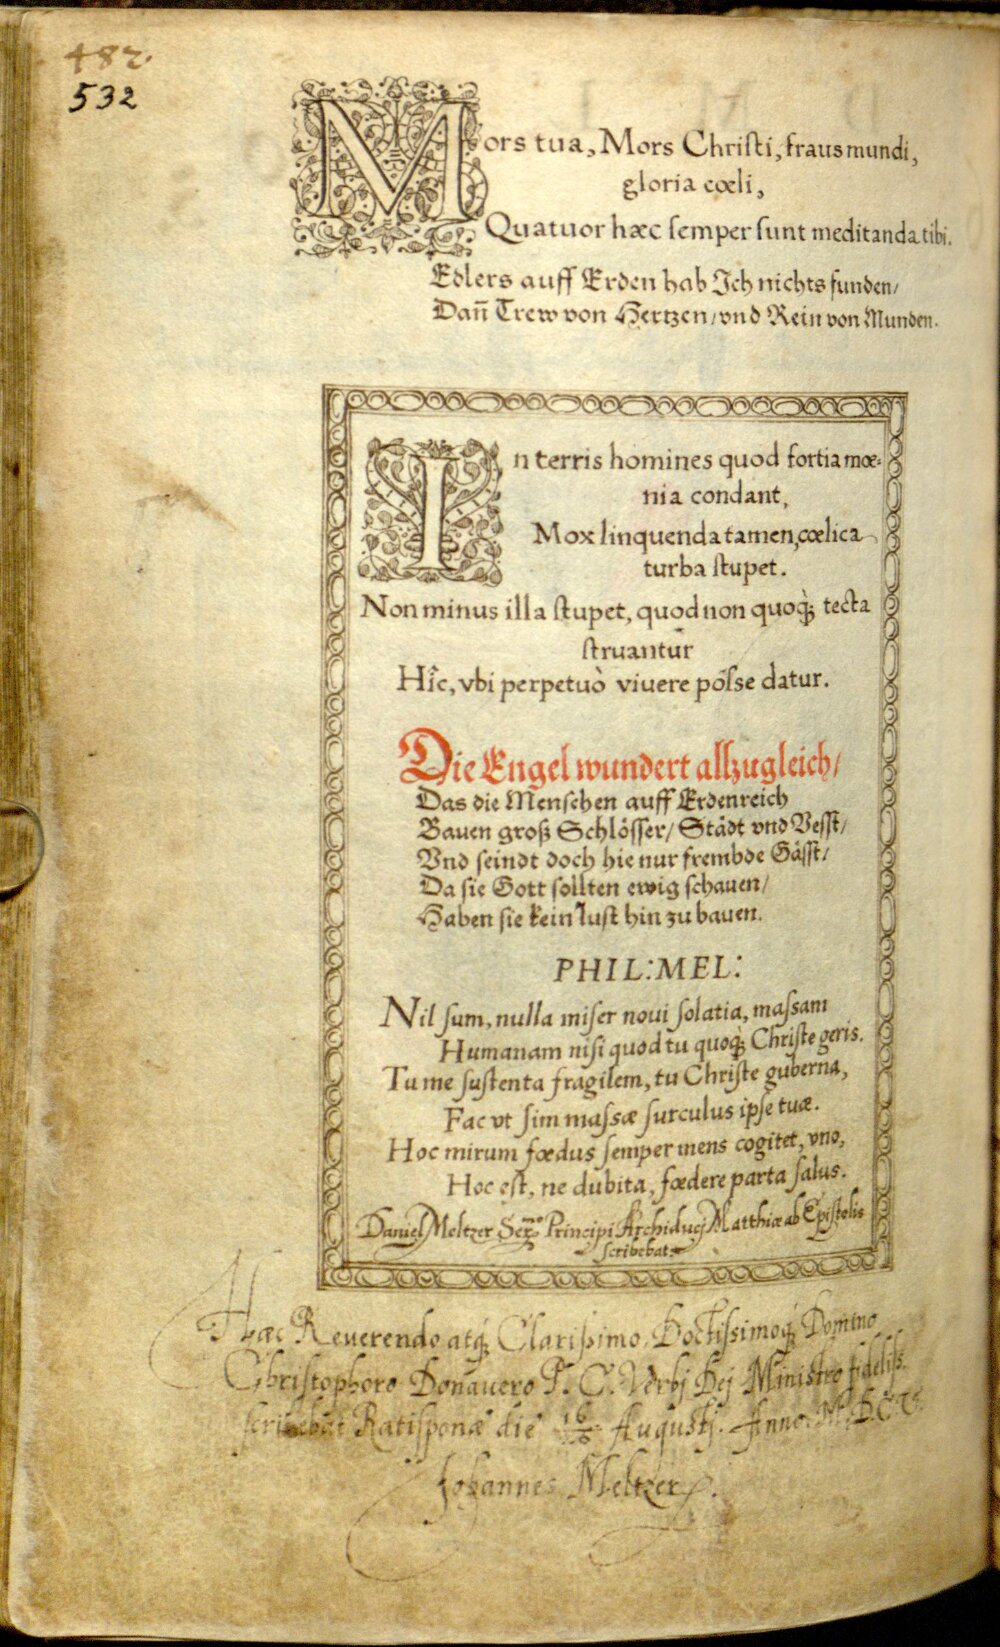 482.
532
Mors tua, Mors Christi, fraus mundi,
gloria cœli,
Quatuor hæc semper sunt meditanda tibi.
Edlers auff Erden hab Ich nichts funden/
Dañ Trew von Hertzen/vnd Rein von Munden.
In terris homines quod fortia mœ-
nia condant,
Mox linquenda tamen, cœlica
turba stupet.
Non minus illa stupet, quod non quoq; tecta
struantur
Hîc, vbi perpetuò viuere posse datur.
Die Engel wundert allzugleich/
Das die Menschen auff Erdenreich
Bauen groß Schlösser/ Städt vnd Vesst/
Vnd seindt doch hie nur frembde Gässt/
Da sie Gott sollten ewig schauen/
Haben sie kein lust hin zu bauen.
PHIL: MEL:
Nil sum, nulla miser noui solatia, massam
Humanam nisi quod tu quoq; Christe geris.
Tu me sustenta fragilem, tu Christe guberna,
Fac vt sim massæ surculus ipse tuæ.
Hoc mirum fœdus semper mens cogitet, vno,
Hoc est, ne dubita, fœdere parta salus.
Daniel Meltzer Ser.mo Principi Archiducj Matthiæ ab Epistolis
scribebat.
Hæc Reuerendo atq; Clarissimo, Doctissimoq; Domino
Christophoro Donauero P. C. Verbj Dej Ministro fideliss.
scribebat Ratisponæ die 16/26 Augustj. Anno. M.D.C.V.
Johannes Meltzer.